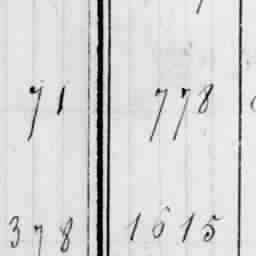 71 778
378 1615